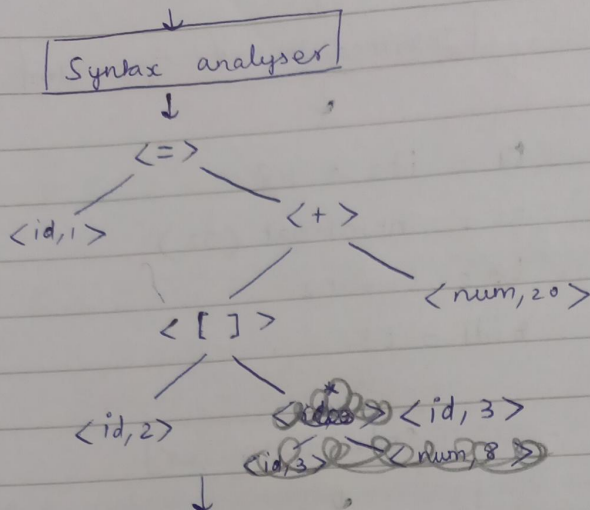 Syntax analyser
<=>
<id,1> <+>
<[ ]> <num,20>
<id,2> <id,3>
<id,3> <num,8>